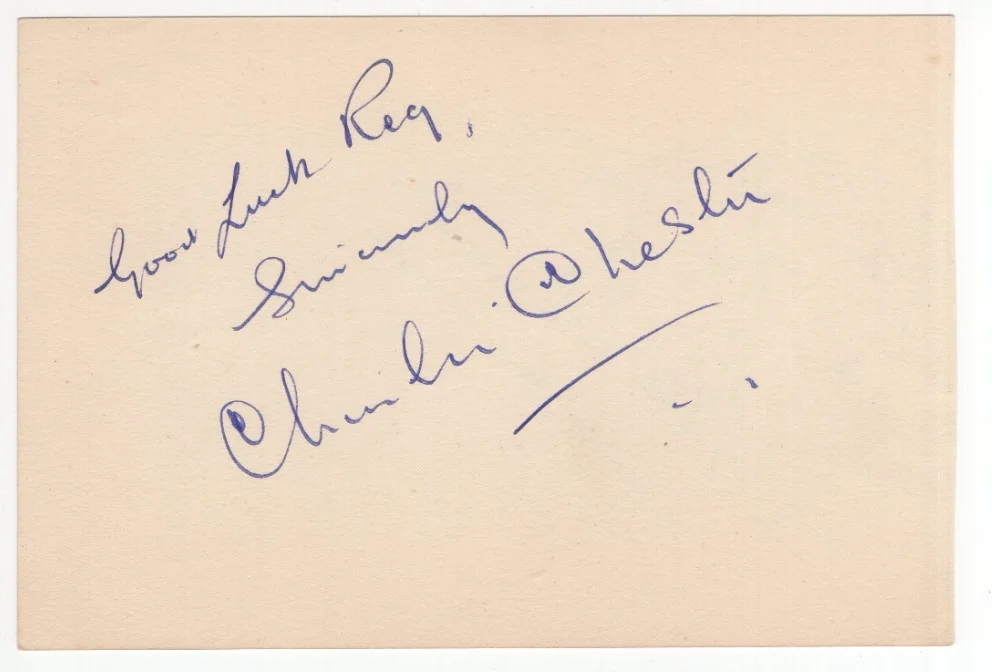 Good Luck Reg,
Sincerely
Charlie Chester